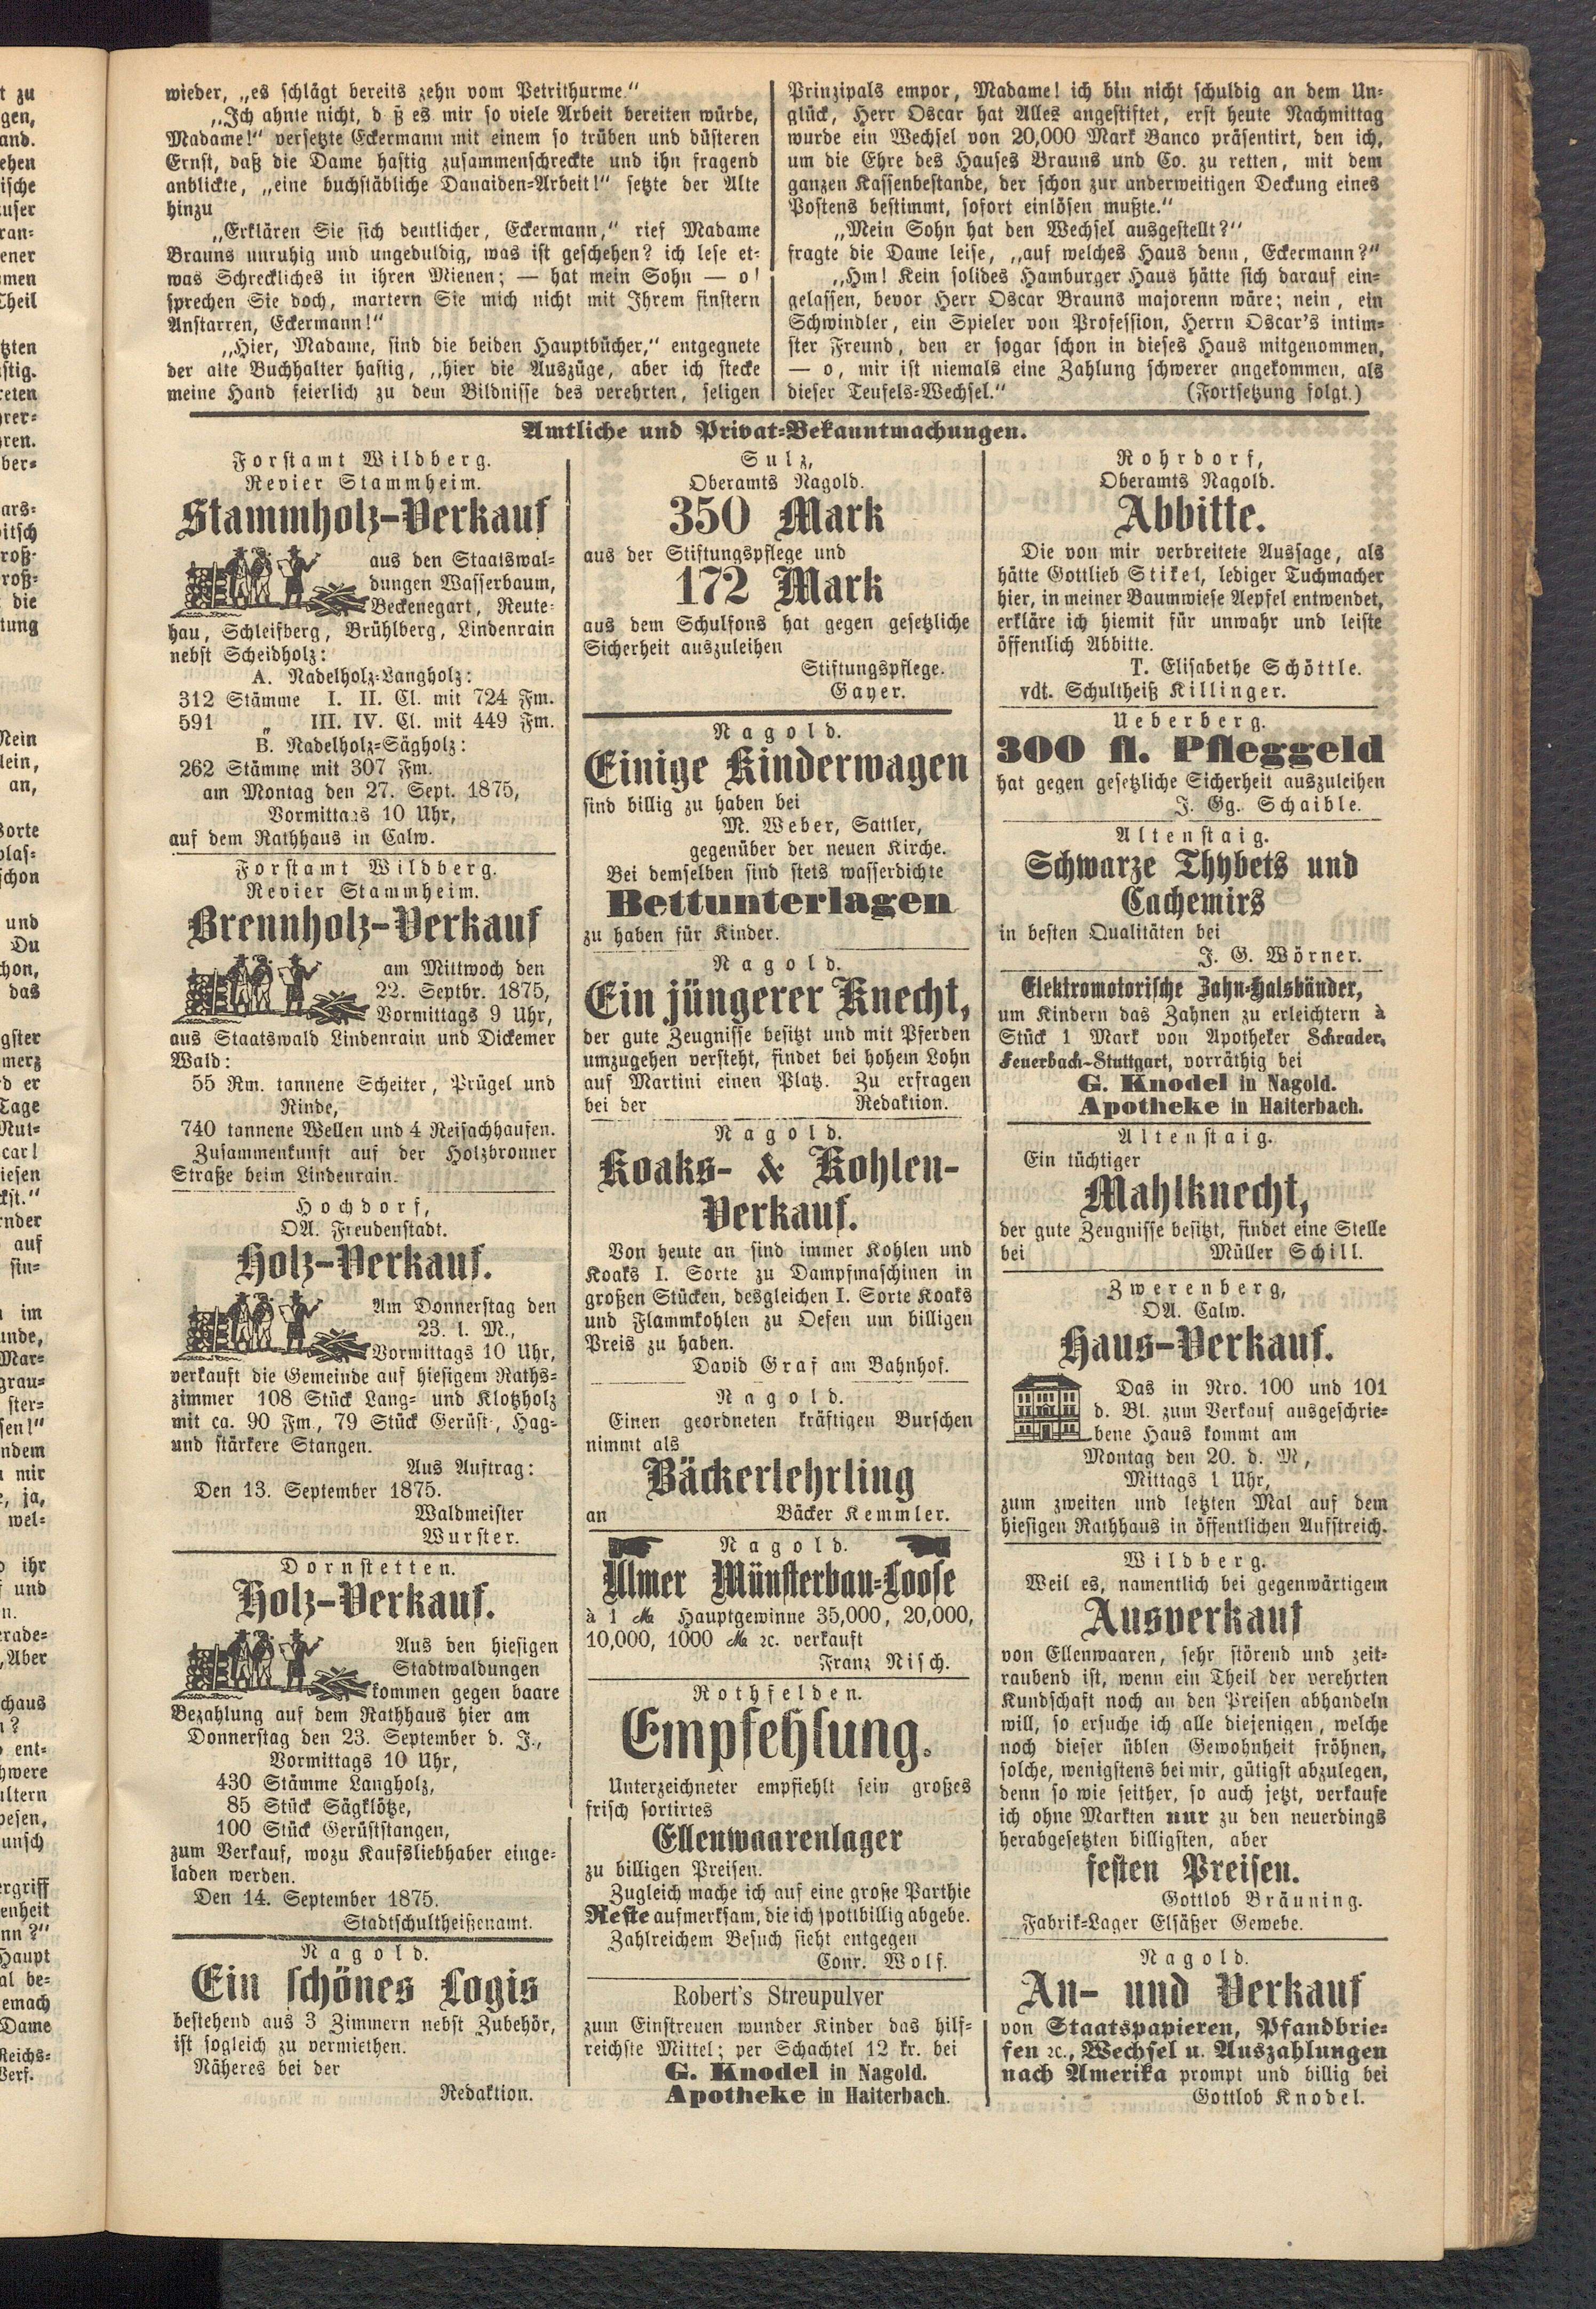 wieder, „es schlägt bereits zehn vom Petrithurme.“
„Ich ahnte nicht, d ß es mir so viele Arbeit bereiten würde,
Madame!“ versetzte Eckermann mit einem so trüben und düsteren
Ernst, daß die Dame hastig zusammenschreckte und ihn fragend
anblickte, „eine buchstäbliche Danaiden-Arbeit!“ setzte der Alte
hinzu
„Erklären Sie sich deutlicher, Eckermann,“ rief Madame
Brauns unruhig und ungeduldig, was ist geschehen? ich lese et-
was Schreckliches in ihren Mienen; — hat mein Sohn — o!
sprechen Sie doch, martern Sie mich nicht mit Ihrem finstern
Anstarren, Eckermann!“
„Hier, Madame, sind die beiden Hauptbücher,“ entgegnete
der alte Buchhalter hastig, „hier die Auszüge, aber ich stecke
meine Hand feierlich zu dem Bildnisse des verehrten, seligen
Prinzipals empor, Madame! ich bin nicht schuldig an dem Un-
glück, Herr Oscar hat Alles angestiftet, erst heute Nachmittag
wurde ein Wechsel von 20,000 Mark Banco präsentirt, den ich,
um die Ehre des Hauses Brauns und Co. zu retten, mit dem
ganzen Kassenbestande, der schon zur anderweitigen Deckung eines
Postens bestimmt, sofort einlösen mußte.“
„Mein Sohn hat den Wechsel ausgestellt?“
fragte die Dame leise, „auf welches Haus denn, Eckermann?“
„Hm! Kein solides Hamburger Haus hätte sich darauf ein-
gelassen, bevor Herr Oscar Brauns majorenn wäre; nein, ein
Schwindler, ein Spieler von Profession, Herrn Oscar's intim-
ster Freund, den er sogar schon in dieses Haus mitgenommen,
— o, mir ist niemals eine Zahlung schwerer angekommen, als
dieser Teufels-Wechsel.“ (Fortsetzung folgt.)
Amtliche und Privat-Bekanntmachungen.
Forstamt Wildberg.
Revier Stammheim.
Stammholz-Verkauf
aus den Staatswal-
dungen Wasserbaum,
Beckenegart, Reute-
hau, Schleifberg, Brühlberg, Lindenrain
nebst Scheidholz:
A. Nadelholz-Langholz:
312 Stämme I. II. Cl. mit 724 Fm.
591 „ III. IV. Cl. mit 449 Fm.
B. Nadelholz-Sägholz:
262 Stämme mit 307 Fm.
am Montag den 27. Sept. 1875,
Vormittags 10 Uhr,
auf dem Rathhaus in Calw.
Forstamt Wildberg.
Revier Stammheim.
Brennholz-Verkauf
am Mittwoch den
22. Septbr. 1875,
Vormittags 9 Uhr,
aus Staatswald Lindenrain und Dickemer
Wald:
55 Rm. tannene Scheiter, Prügel und
Rinde,
740 tannene Wellen und 4 Reisachhaufen.
Zusammenkunft auf der Holzbronner
Straße beim Lindenrain.
Hochdorf,
OA. Freudenstadt.
Holz-Verkauf.
Am Donnerstag den
23. l. M.,
Vormittags 10 Uhr,
verkauft die Gemeinde auf hiesigem Raths-
zimmer 108 Stück Lang- und Klotzholz
mit ca. 90 Fm., 79 Stück Gerüst-, Hag-
und stärkere Stangen.
Aus Auftrag:
Den 13. September 1875.
Waldmeister
Wurster.
Dornstetten.
Holz-Verkauf.
Aus den hiesigen
Stadtwaldungen
kommen gegen baare
Bezahlung auf dem Rathhaus hier am
Donnerstag den 23. September d. J.,
Vormittags 10 Uhr,
430 Stämme Langholz,
85 Stück Sägklötze,
100 Stück Gerüststangen,
zum Verkauf, wozu Kaufsliebhaber einge-
laden werden.
Den 14. September 1875.
Stadtschultheißenamt.
Nagold.
Ein schönes Logis
bestehend aus 3 Zimmern nebst Zubehör,
ist sogleich zu vermiethen.
Näheres bei der
Redaktion.
Sulz,
Oberamts Nagold.
350 Mark
aus der Stiftungspflege und
172 Mark
aus dem Schulfons hat gegen gesetzliche
Sicherheit auszuleihen
Stiftungspflege.
Gayer.
Nagold.
Einige Kinderwagen
sind billig zu haben bei
M. Weber, Sattler,
gegenüber der neuen Kirche.
Bei demselben sind stets wasserdichte
Bettunterlagen
zu haben für Kinder.
Nagold.
Ein jüngerer Knecht,
der gute Zeugnisse besitzt und mit Pferden
umzugehen versteht, findet bei hohem Lohn
auf Martini einen Platz. Zu erfragen
bei der Redaktion.
Nagold.
Koaks- & Kohlen-
Verkauf.
Von heute an sind immer Kohlen und
Koaks I. Sorte zu Dampfmaschinen in
großen Stücken, desgleichen I. Sorte Koaks
und Flammkohlen zu Oefen um billigen
Preis zu haben.
David Graf am Bahnhof.
Nagold.
Einen geordneten kräftigen Burschen
nimmt als
Bäckerlehrling
an Bäcker Kemmler.
Nagold.
Ulmer Münsterbau-Loose
à 1 ℳ Hauptgewinne 35,000, 20,000,
10,000, 1000 ℳ ꝛc. verkauft
Franz Nisch.
Rothfelden.
Empfehlung.
Unterzeichneter empfiehlt sein großes
frisch sortirtes
Ellenwaarenlager
zu billigen Preisen.
Zugleich mache ich auf eine große Parthie
Reste aufmerksam, die ich spottbillig abgebe.
Zahlreichem Besuch sieht entgegen
Conr. Wolf.
Robert's Streupulver
zum Einstreuen wunder Kinder das hilf-
reichste Mittel; per Schachtel 12 kr. bei
G. Knodel in Nagold.
Apotheke in Haiterbach.
Rohrdorf,
Oberamts Nagold.
Abbitte.
Die von mir verbreitete Aussage, als
hätte Gottlieb Stikel, lediger Tuchmacher
hier, in meiner Baumwiese Aepfel entwendet,
erkläre ich hiemit für unwahr und leiste
öffentlich Abbitte.
T. Elisabethe Schöttle.
vdt. Schultheiß Killinger.
Ueberberg.
300 fl. Pfleggeld
hat gegen gesetzliche Sicherheit auszuleihen
J. Gg. Schaible.
Altenstaig.
Schwarze Thybets und
Cachemirs
in besten Qualitäten bei
J. G. Wörner.
Elektromotorische Zahn-Halsbänder,
um Kindern das Zahnen zu erleichtern à
Stück 1 Mark von Apotheker Schrader,
Feuerbach-Stuttgart, vorräthig bei
G. Knodel in Nagold.
Apotheke in Haiterbach.
Altenstaig.
Ein tüchtiger
Mahlknecht,
der gute Zeugnisse besitzt, findet eine Stelle
bei Müller Schill.
Zwerenberg,
OA. Calw.
Haus-Verkauf.
Das in Nro. 100 und 101
d. Bl. zum Verkauf ausgeschrie-
bene Haus kommt am
Montag den 20. d. M,
Mittags 1 Uhr,
zum zweiten und letzten Mal auf dem
hiesigen Rathhaus in öffentlichen Aufstreich.
Wildberg.
Weil es, namentlich bei gegenwärtigem
Ausverkauf
von Ellenwaaren, sehr störend und zeit-
raubend ist, wenn ein Theil der verehrten
Kundschaft noch an den Preisen abhandeln
will, so ersuche ich alle diejenigen, welche
noch dieser üblen Gewohnheit fröhnen,
solche, wenigstens bei mir, gütigst abzulegen,
denn so wie seither, so auch jetzt, verkaufe
ich ohne Markten nur zu den neuerdings
herabgesetzten billigsten, aber
festen Preisen.
Gottlob Bräuning.
Fabrik-Lager Elsäßer Gewebe.
Nagold.
An- und Verkauf
von Staatspapieren, Pfandbrie-
fen ꝛc., Wechsel u. Auszahlungen
nach Amerika prompt und billig bei
Gottlob Knodel.